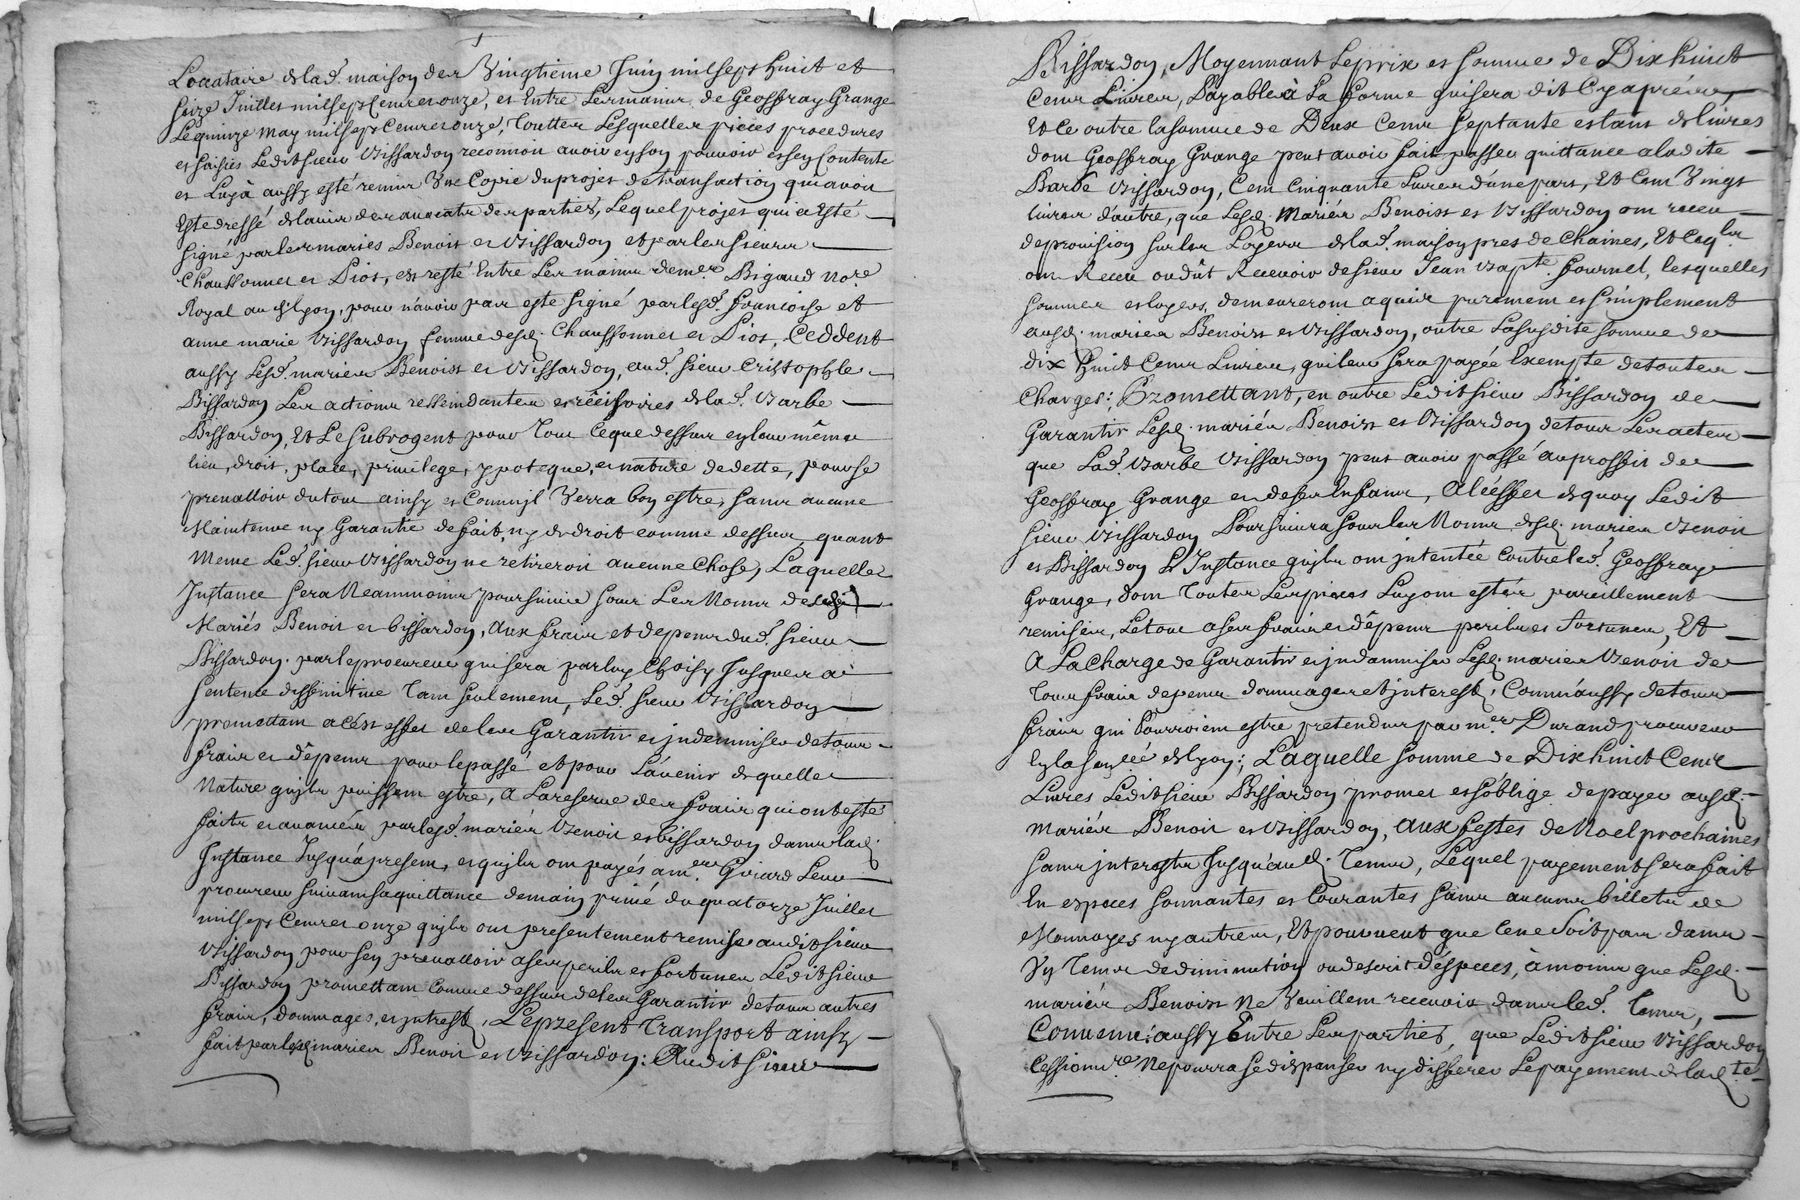 Locataire de lad. maison des Vingtieme Juin mil sept huit et
seize Juillet mil sept Cent et onze, et Entre Les mains de Geoffray Grange
Le quinze may mil sept Cent et onze, Touttes Lesquelles pieces procedures
et saisies Ledit sieur Bissardon reconnoit avoir en son pouvoir et s'en Contente
et Luy à aussy esté remis Une Copie du projet de transaction qui avoit
Esté dressé de l'avis des avocats des parties, Lequel projet qui a Esté
signé par les mariés Benoist et Bissardon et par les sieurs
Chaussonnet et Piot, est resté Entre Les mains de me. Rigaud Nore.
Royal aud. Lyon, pour n'avoir pas esté signé par lesd. francoise et
anne marie Bissardon femme desd. Chaussonnet et Piot, Ceddent
aussy Lesd. mariés Benoist et Bissardon, aud. sieur Cristophle
Bissardon Les actions rescindantes et rescisoires de lad. Barbe
Bissardon, Et Le subrogent pour Tout ce que dessus en leur même
lieu, droit, place, privilege, ypoteque, et nature de dette, pour se
prevalloir du tout ainsy et Comm'il Verra bon estre, sans aucune
Maintenue ny Garantie de fait, ny de droit comme dessus, quant
meme Led. sieur Bissardon ne retireroit aucune Chose, Laquelle
Instance sera Neammoins poursuivie sous Les Noms desd.
Mariés Benoist et bissardon, aux frais et depens dud. sieur
Bissardon. par le procureur qui sera par luy Choisy Jusques a
sentence diffinitive Tant seulement, Led. sieur Bissardon
promettant a cest effet de les Garantir et jndemniser de tous
frais et dêpens pour le passé et pour L'avenir de quelle
Nature qu'ils puissent estre, a La reserve des frais qui ont esté
faits et avancés par lesd. mariés Benoist et bissardon dans lad.
Instance Jusqu'à present, et qu'ils ont payés a mre. Girard Leur
procureur suivant sa quittance de main privé du quatorze Juillet
mil sept Cent et onze qu'ils ont presentement remise audit sieur
Bissardon pour s'en prevalloir a ses perils et fortunes Ledit sieur
Bissardon promettant Comme dessus de les Garantir de tous autres
frais, dommages, et jnterest, Le present Transport ainsy
fait par lesd. mariés Benoist et Bissardon; Audit sieur
Bissardon, Moyennant Le prix et somme de Dix huit
Cent Livres, Payable à La forme qui sera dit Cy aprés
Et ce outre la somme de Deux Cent septante et tant de livres
dont Geoffray Grange peut avoir fait passer quittance a ladite
Barbe Bissardon, Cent Cinquante Livres d'une part, Et Cent Vingt
livres d'autre, que Lesd. Mariés Benoist et Bissardon ont receu
de provision sur les Loyers de lad. maison pres de Chaines, Et ceq'ls
ont Receu ou dût Recevoir de sieur Jean Bapte. fournel, lesquelles
sommes et loyers, demeureront aquis purement et simplement
ausd. mariés Benoist et Bissardon, outre La susdite somme de
dix huit Cent Livres, qui leur sera payée Exempte de toutes
Charges; Promettant, en outre Ledit sieur Bissardon de
Garantir Lesd. mariés Benoist et Bissardon de tous Les actes
que Lad. Barbe Bissardon peut avoir passé au proffit de
Geoffray Grange et de ses Enfans, A l'éffet de quoy Ledit
sieur Bissardon Poursuivra sous les Noms desd. mariés Benoist
et Bissardon L'Instance qu'ils ont jntentée contre led. Geoffray
Grange, dont Toutes Les pieces Luy ont estés pareillement
remises, Le tout a ses frais et dêpens perils et fortunes, Et
A La Charge de Garantir et jndamniser Lesd. mariés Benoist de
Tous frais depens dommages et jnterest, Comm'aussy de tous
frais qui Pourroient estre pretendus par mre. Durand procureur
En la sen.cée de Lyon; Laquelle somme de Dix huit Cent
Livres Ledit sieur Bissardon promet et s'oblige de payer ausd.
Mariés Benoist et Bissardon, aux festes de Noel prochaines
sans jnterests Jusqu'aud. Tems, Lequel payement sera fait
En especes sonnantes et Courantes sans aucuns billets de
Monnoyes ny autres, Et pourveut que Ce ne Soit pas dans
Un Tems de diminution ou descrit d'especes, à moins que Lesd.
mariés Benoist Ne Veuillent recevoir dans led. Tems,
Convenu aussy Entre Les parties, que Ledit sieur Bissardon
Cessionre. Ne pourra se dispenser ny differer Le payement de lad.te